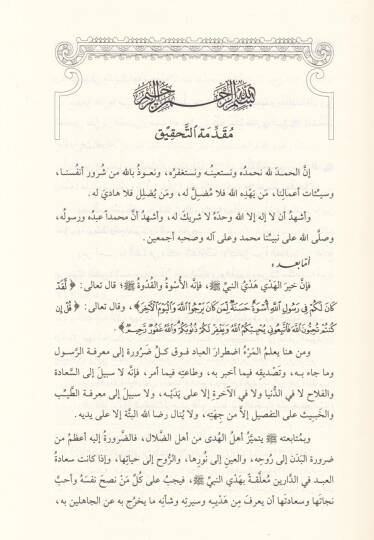 بسم الله الرحمن الرحيم
مُقَدِّمَة التَّحْقِيْق
إنَّ الحمدَ لله نحمدُه ونستعينُه ونستغفرُه، ونعوذُ بالله من شُرور أنفُسنا،
وسيِّئات أعمالِنا، مَن يَهْدِه الله فلا مُضِلَّ له، ومَن يُضلِل فلا هاديَ له.
وأشهدُ أن لا إله إلا الله وحدَهُ لا شريكَ له، وأشهدُ أنَّ محمداً عبدُه ورسولُه،
وصلَّى الله على نبيِّنا محمد وعلى آله وصحبه أجمعين.
أمّا بعد:
فإنَّ خيرَ الهَدْي هَدْيُ النبيِّ ﷺ، فإنَّه الأُسْوةُ والقُدْوةُ ﷺ؛ قال تعالى: ﴿لَّقَدْ
كَانَ لَكُمْ فِي رَسُولِ اللَّهِ أُسْوَةٌ حَسَنَةٌ لِّمَن كَانَ يَرْجُوا اللَّهَ وَالْيَوْمَ الْآخِرَ﴾، وقال تعالى: ﴿قُلْ إِن
كُنتُمْ تُحِبُّونَ اللَّهَ فَاتَّبِعُونِي يُحْبِبْكُمُ اللَّهُ وَيَغْفِرْ لَكُمْ ذُنُوبَكُمْ وَاللَّهُ غَفُورٌ رَّحِيمٌ﴾.
ومن هنا يعلمُ المَرْءُ اضطرارَ العباد فوق كلِّ ضَرُورة إلى معرفة الرَّسول
وما جاء به، وتَصْديقِه فيما أخبر به، وطاعتِه فيما أمر، فإنَّه لا سبيلَ إلى السَّعادة
والفلاح لا في الدُّنيا ولا في الآخرةِ إلا على يَدَيْه، ولا سبيلَ إلى معرفة الطَّيِّب
والخبيث على التفصيل إلاَّ من جِهَتِه، ولا يُنال رضا الله البتَّة إلا على يديه.
وبمُتابعته ﷺ يتميَّزُ أهلُ الهُدى من أهل الضَّلال، فالضَّرورةُ إليه أعظمُ من
ضرورة البَدَن إلى رُوحِه، والعينِ إلى نُورِها، والرُّوح إلى حياتِها، وإذا كانت سعادةُ
العبد في الدَّارين مُعلَّقةً بهَدْي النبيِّ ﷺ، فيجبُ على كُلِّ مَنْ نصحَ نفسَهُ وأحبَّ
نجاتَها وسعادتَها أن يعرفَ مِن هَدْيِه وسيرتِه وشأنِه ما يخرُج به عن الجاهلين به،